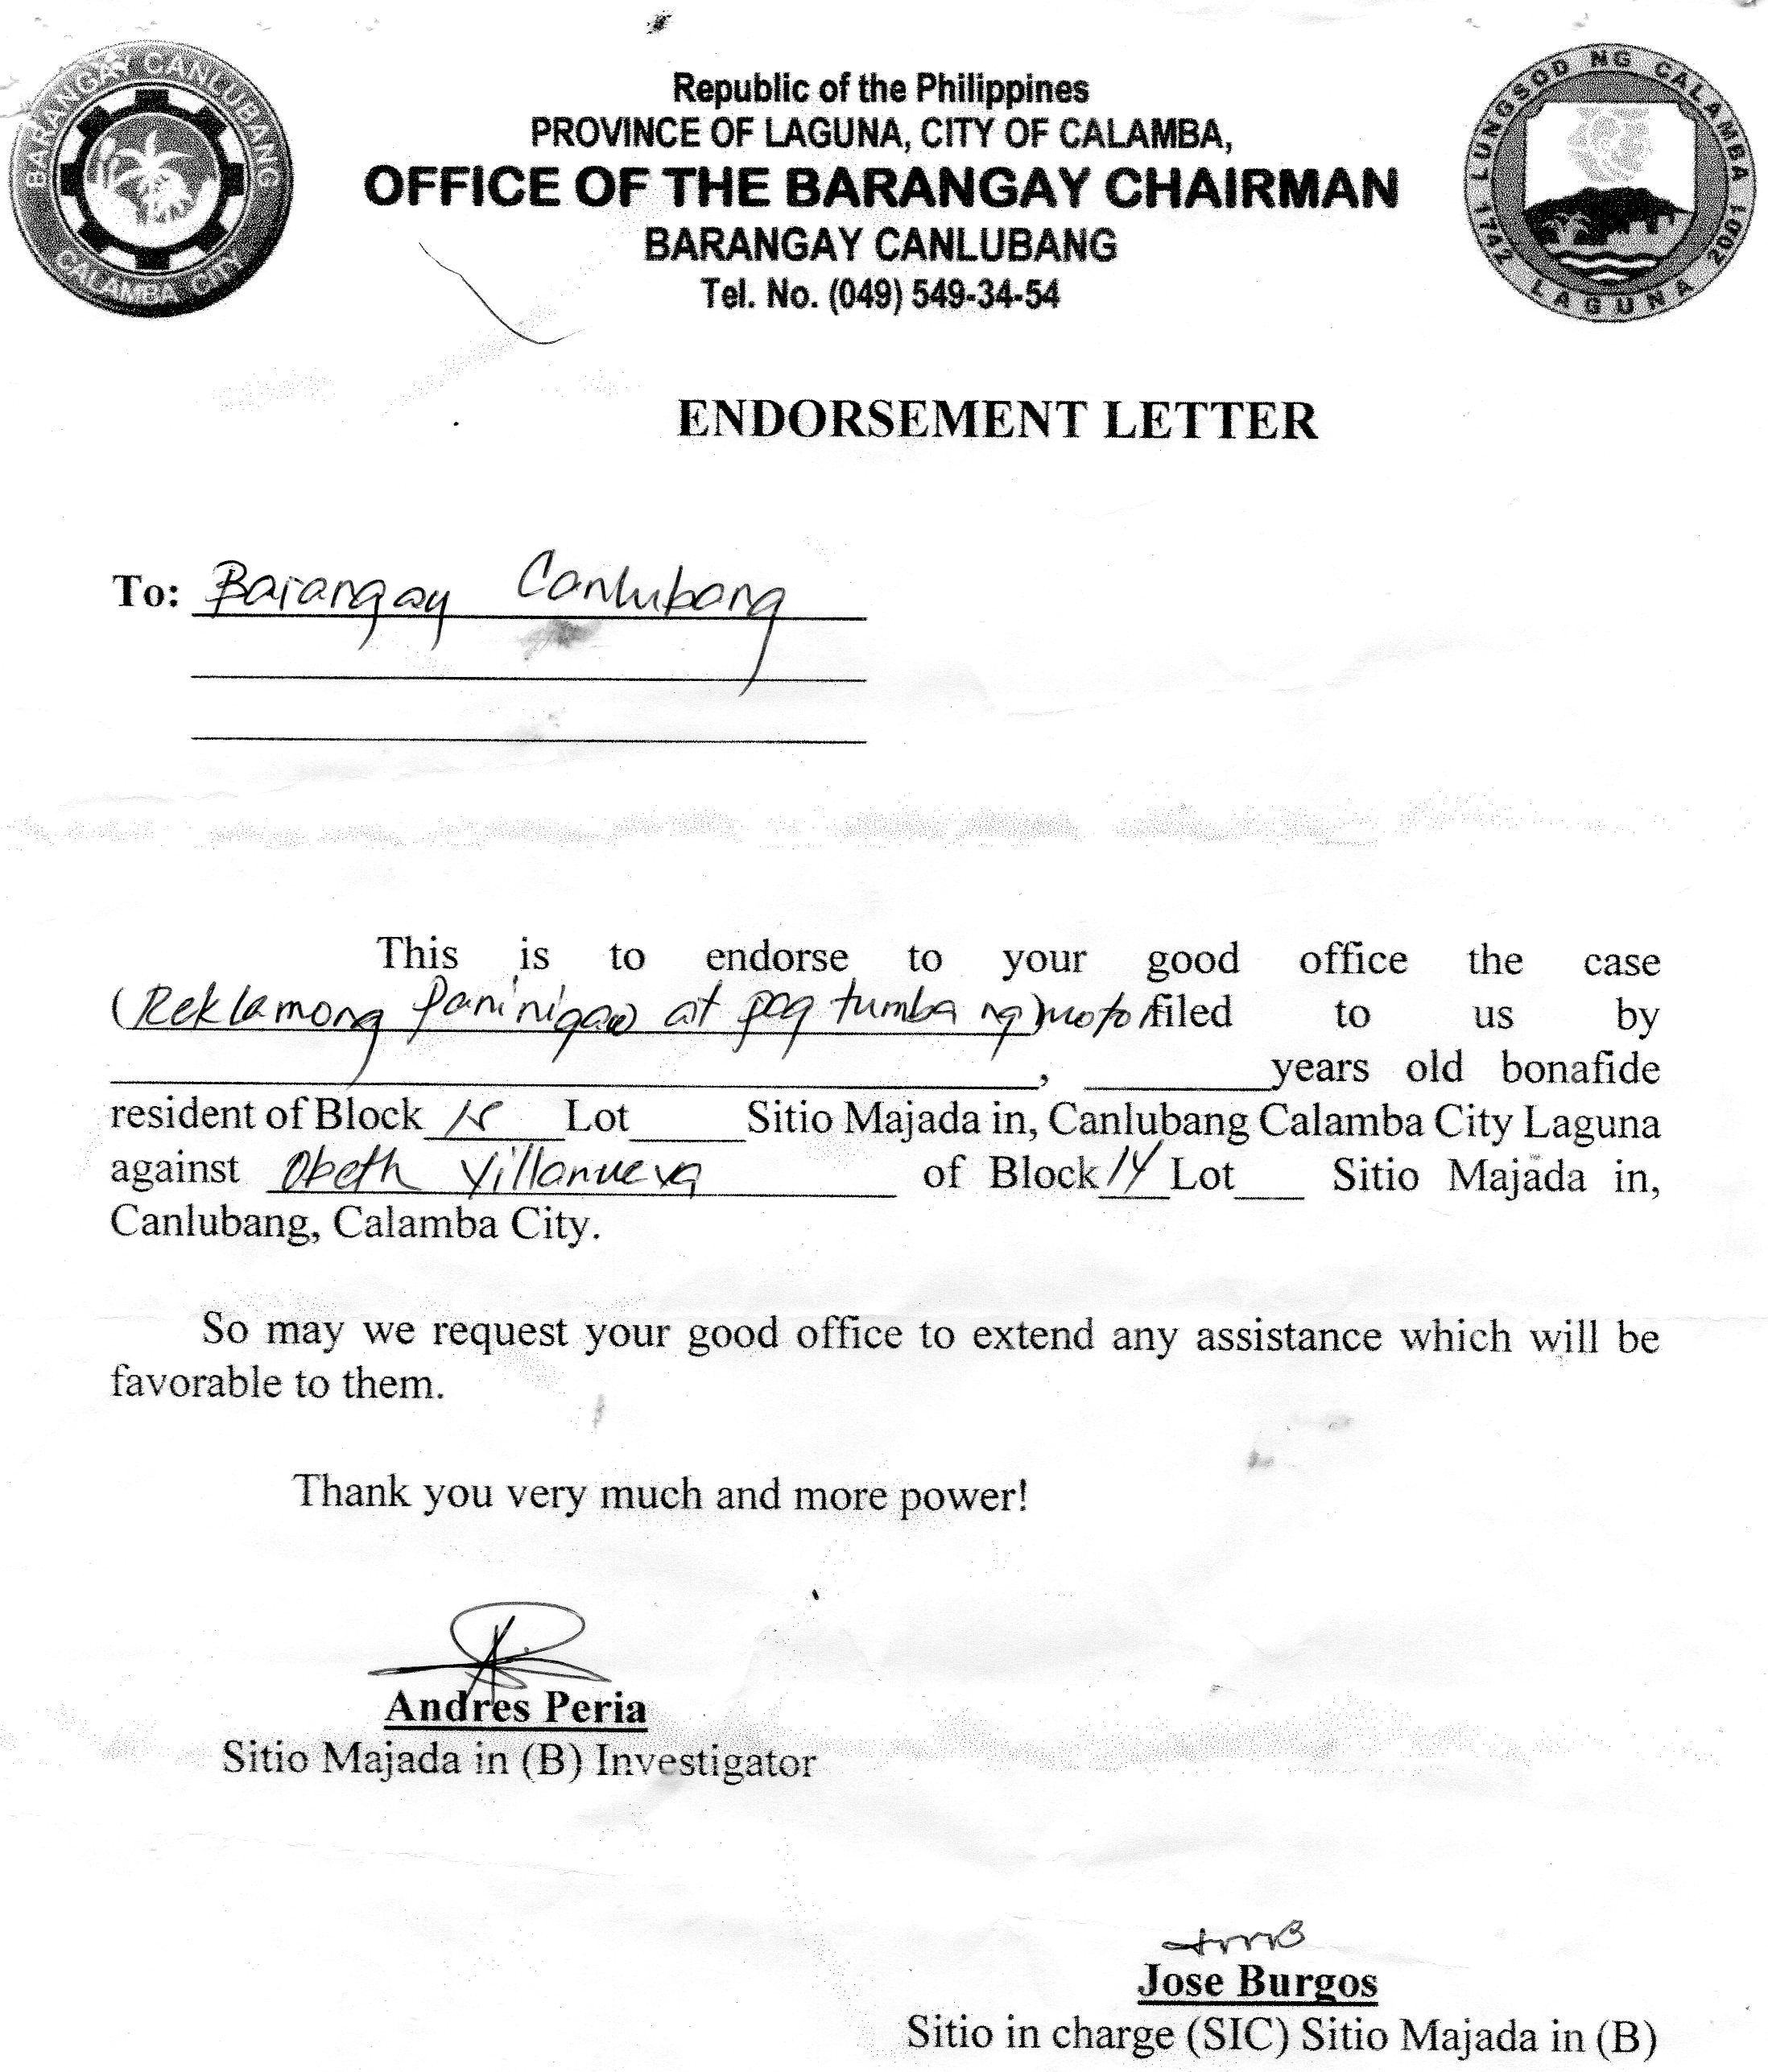 BARANGAY CANLUBANG
CALAMBA CITY
LUNGSOD NG CALAMBA
1742 LAGUNA 2001
Republic of the Philippines
PROVINCE OF LAGUNA, CITY OF CALAMBA,
OFFICE OF THE BARANGAY CHAIRMAN
BARANGAY CANLUBANG
Tel. No. (049) 549-34-54
ENDORSEMENT LETTER
To: Barangay Canlubang
This is to endorse to your good office the case
(Reklamong paninigaw at pag tumba ng) motor filed to us by
, years old bonafide
resident of Block Lot Sitio Majada in, Canlubang Calamba City Laguna
against Obeth Villanueva of Block 14 Lot Sitio Majada in,
Canlubang, Calamba City.
So may we request your good office to extend any assistance which will be
favorable to them.
Thank you very much and more power!
Andres Peria
Sitio Majada in (B) Investigator
Jose Burgos
Sitio in charge (SIC) Sitio Majada in (B)